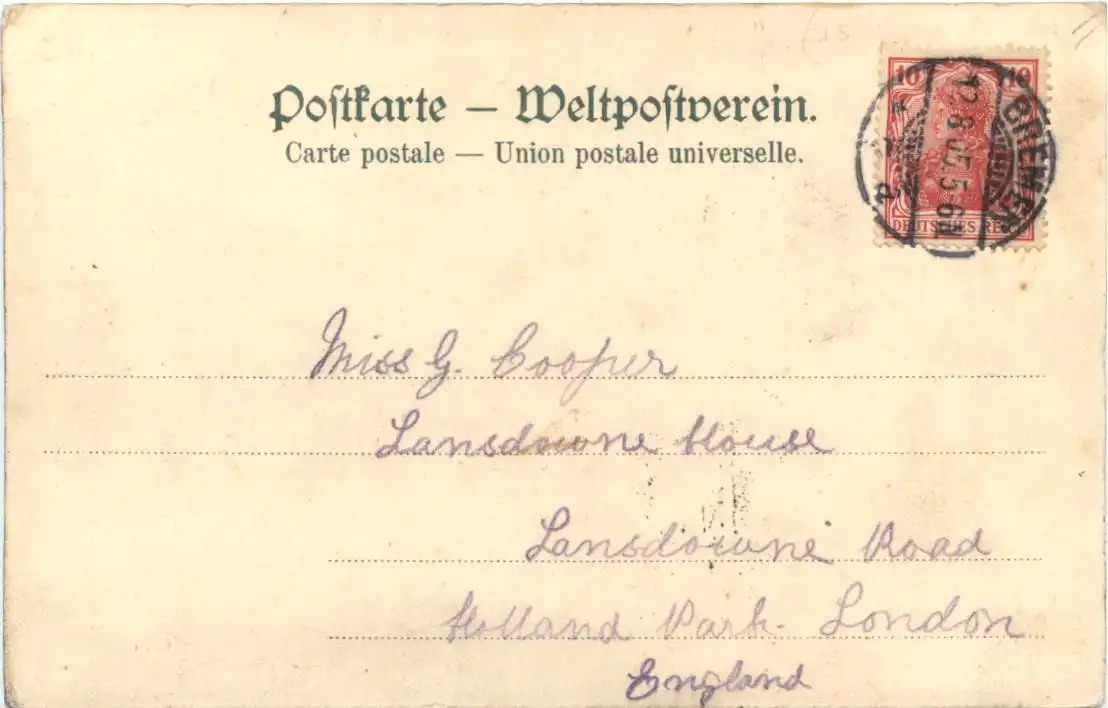 Postkarte — Weltpostverein.
Carte postale — Union postale universelle.
10 10
DEUTSCHES REICH
BREMEN
12.8.05.5-6N.
Miss G. Cooper
Lansdowne House
Lansdowne Road
Holland Park. London
England